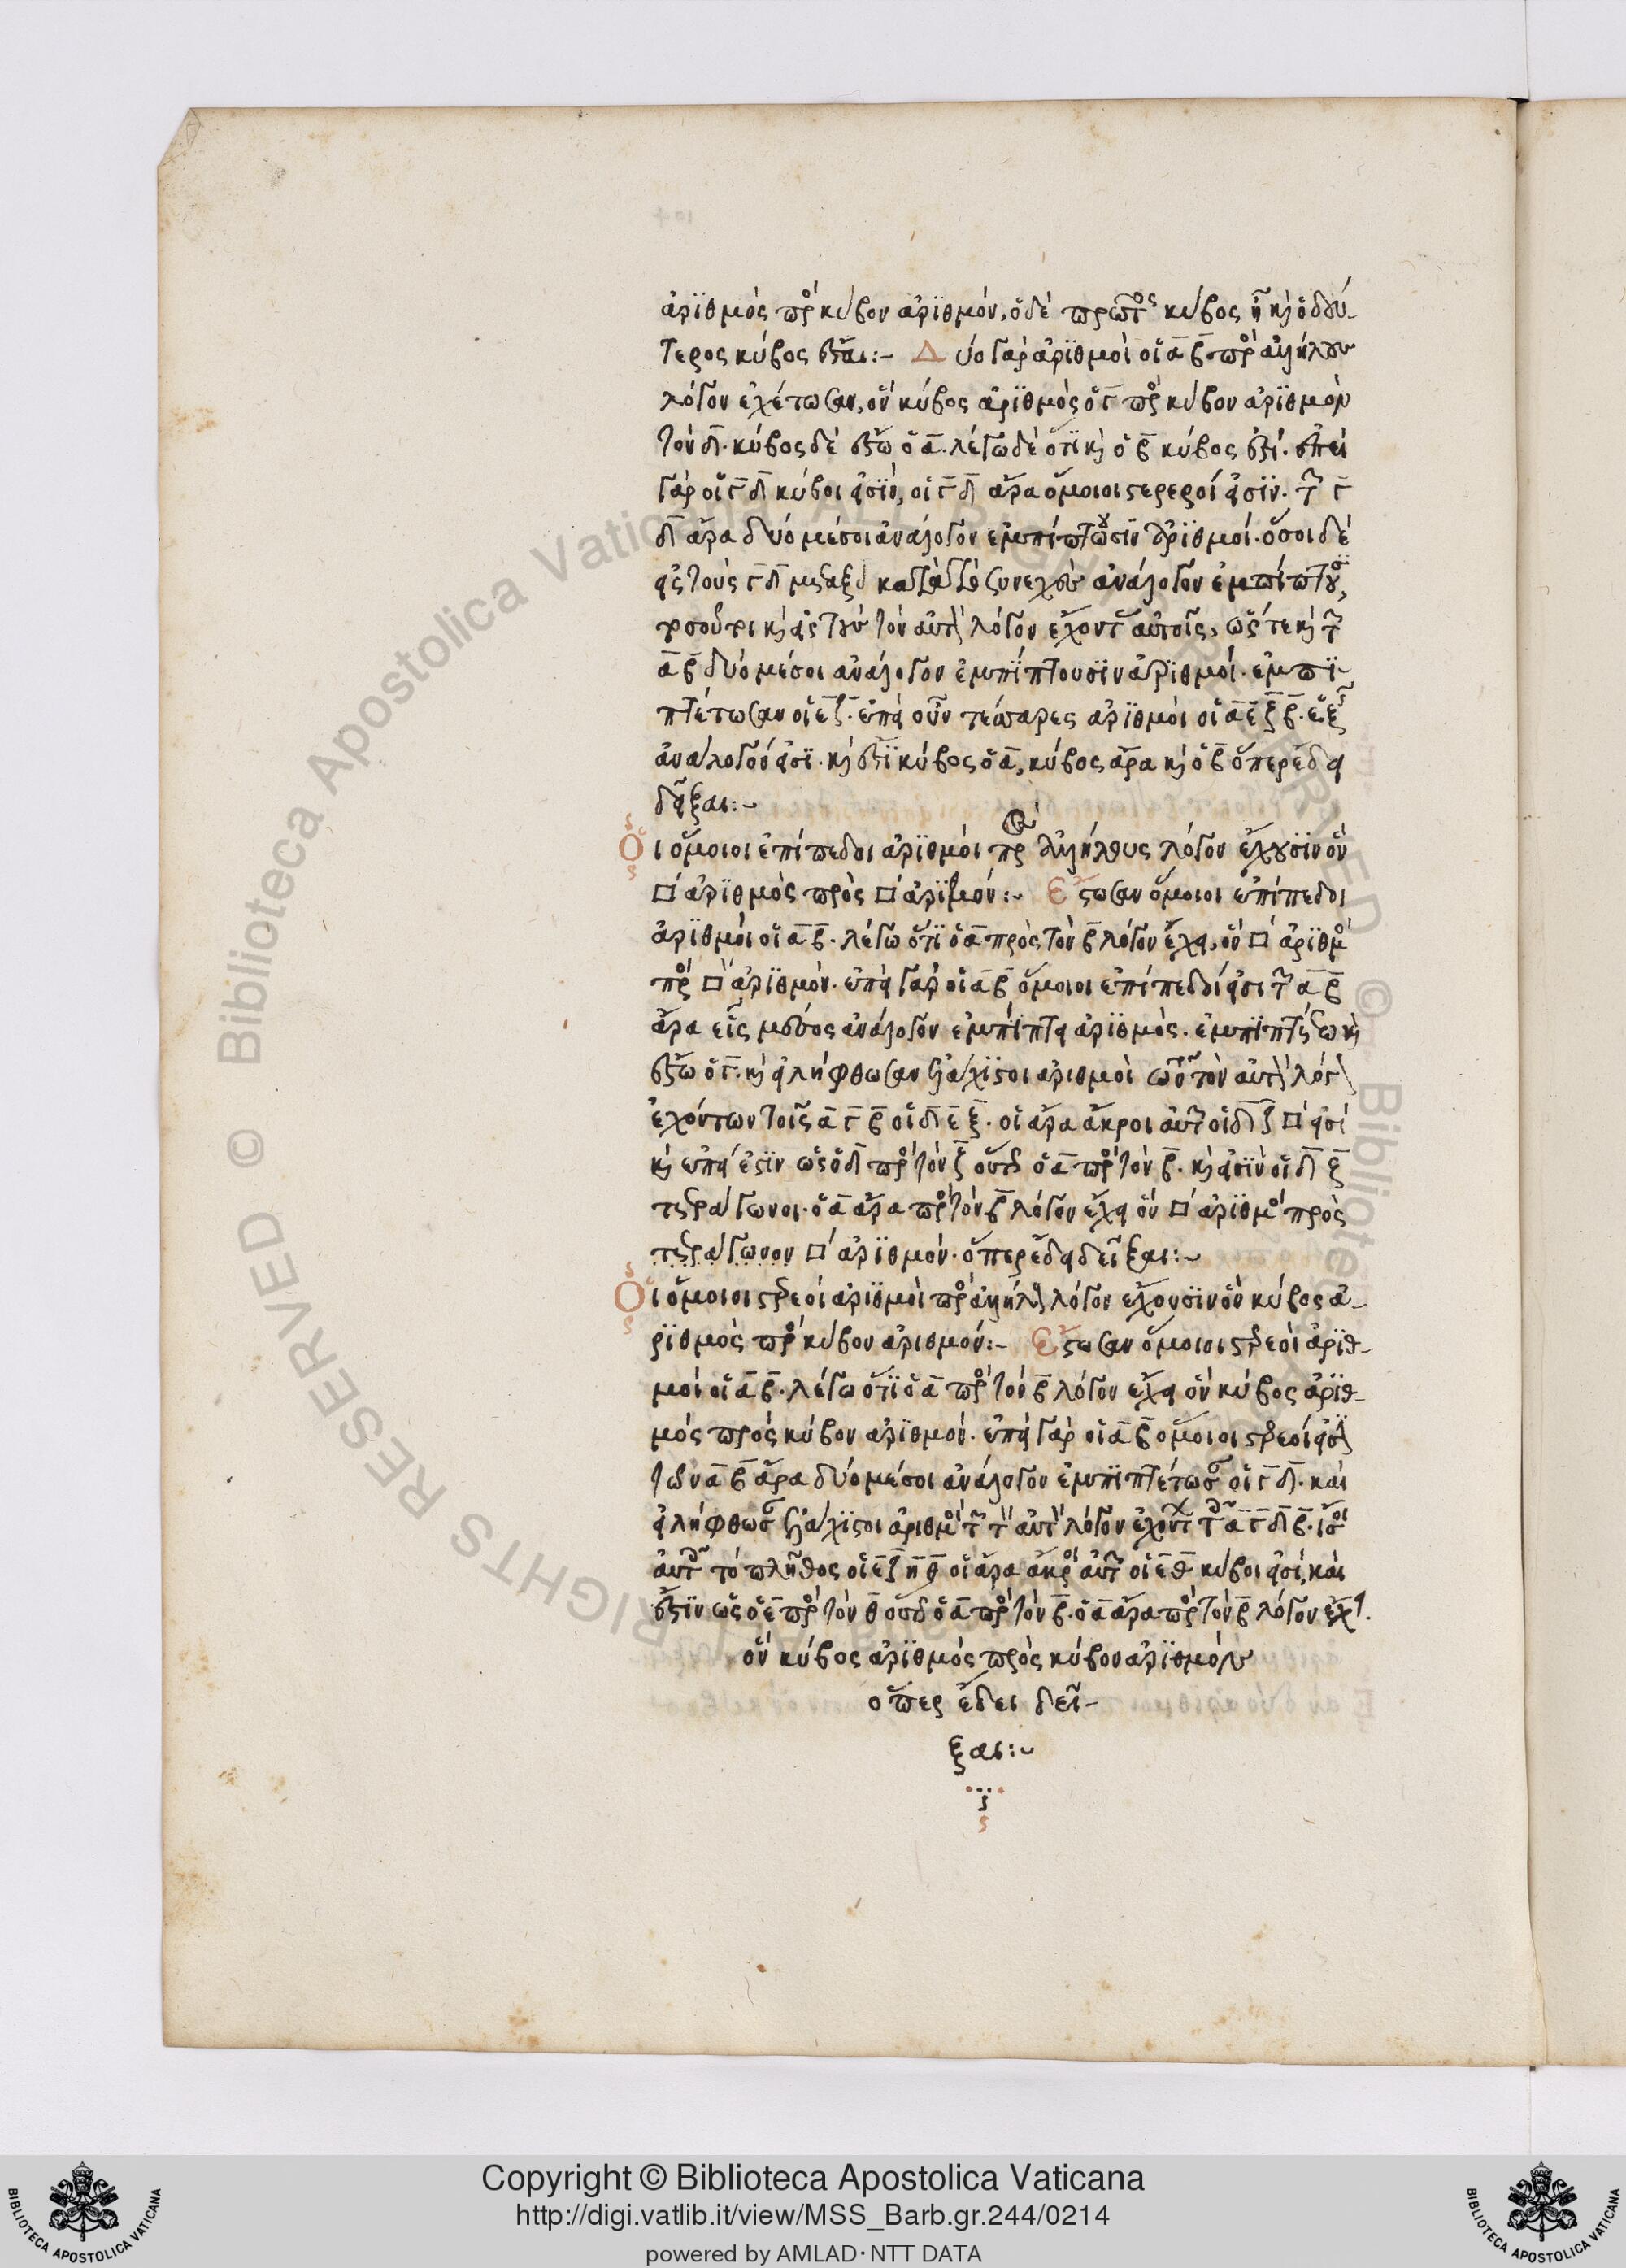 ἀρϊθμὸς πρὸς κύβον ἀρϊθμόν, ὁ δὲ πρῶτος κύβος ἦ καὶ ὁ δεύ-
τερος κύβος ἔσται:- Δύο γὰρ ἀρϊθμοὶ οἱ α̅ β̅ πρὸς ἀλλήλους
λόγον ἐχέτωσαν, ὃν κύβος ἀρϊθμὸς ὁ γ̅ πρὸς κύβον ἀρϊθμὸν
τὸν δ̅. κύβος δὲ ἔστω ὁ α̅. λέγω δὲ ὅτϊ καὶ ὁ β̅ κύβος ἐστί. ἐπεὶ
γὰρ οἱ γ̅ δ̅ κύβοι εἰσϊν, οἱ γ̅ δ̅ ἄρα ὅμοιοι στερεροί εἰσϊν. τῶν γ̅
δ̅ ἄρα δύο μέσοι ἀνάλογον ἐμπίπτουσϊν ἀρϊθμοί. ὅσοι δὲ
εἰς τοὺς γ̅ δ̅ μεταξὺ κατὰ τὸ συνεχὲς ἀνάλογον ἐμπίπτουσι,
τοσοῦτοι καὶ εἰς τοὺς τὸν αὐτὸν λόγον ἔχοντας αὐτοῖς, ὥστε καὶ τῶν
α̅ β̅ δύο μέσοι ἀνάλογον ἐμπίπτουσϊν ἀρϊθμοί. ἐμπϊ-
πτέτωσαν οἱ ε̅ ζ̅. ἐπεὶ οὖν τέσσαρες ἀρϊθμοὶ οἱ α̅ ε̅ ξ̅ β̅. ἑξῆς
ἀνάλογόν εἰσϊ. καὶ ἔστϊ κύβος ὁ α̅, κύβος ἄρα καὶ ὁ β̅ ὅπερ ἔδει
δεῖξαι:~
Οἱ ὅμοιοι ἐπίπεδοι ἀρϊθμοὶ πρὸς ἀλλήλους λόγον ἔχουσϊν ὃν
□ ἀρϊθμὸς πρὸς □ ἀρϊθμόν:~ Ἔστωσαν ὅμοιοι ἐπίπεδοι
ἀρϊθμοὶ οἱ α̅ β̅. λέγω ὅτϊ ὁ α̅ πρὸς τὸν β̅ λόγον ἔχει, ὃν □ ἀρϊθμὸς
πρὸς □ ἀρϊθμόν. ἐπεὶ γὰρ οἱ α̅ β̅ ὅμοιοι ἐπίπεδοί εἰσι τῶν α̅ β̅
ἄρα εἷς μέσος ἀνάλογον ἐμπίπτει ἀρϊθμός. ἐμπϊπτέτω καὶ
ἔστω ὁ γ̅. καὶ εἰλήφθωσαν ἐλάχϊστοι ἀριθμοὶ τῶν τὸν αὐτὸν λόγον
ἐχόντων τοῖς α̅ γ̅ β̅ οἱ δ̅ ε̅ ξ̅. οἱ ἄρα ἄκροι αὐτῶν οἱ δ̅ ζ̅ □ εἰσί
καὶ ἐπεί ἐστϊν ὡς ὁ δ̅ πρὸς τὸν ξ̅ οὕτως ὁ α̅ πρὸς τὸν β̅. καὶ εἰσϊν οἱ δ̅ ξ̅
τετράγωνοι. ὁ α̅ ἄρα πρὸς τὸν β̅ λόγον ἔχει ὃν □ ἀρϊθμὸς πρὸς
τετράγωνον □ ἀρϊθμόν. ὅπερ ἔδει δεῖξαι:~
Οἱ ὅμοιοι στερεοὶ ἀριθμοὶ πρὸς ἀλλήλους λόγον ἔχουσϊν ὃν κύβος ἀ-
ρϊθμὸς πρὸς κύβον ἀριθμόν:- Ἔστωσαν ὅμοιοι στερεοὶ ἀρϊθ-
μοὶ οἱ α̅ β̅. λέγω ὅτϊ ὁ α̅ πρὸς τὸν β̅ λόγον ἔχει ὃν κύβος ἀρϊθ-
μὸς πρὸς κύβον ἀρϊθμόν. ἐπεὶ γὰρ οἱ α̅ β̅ ὅμοιοι στερεοί εἰσϊν
τῶν α̅ β̅ ἄρα δύο μέσοι ἀνάλογον ἐμπϊπτέτωσαν οἱ γ̅ δ̅. καὶ
εἰλήφθωσαν ἐλάχϊστοι ἀριθμοὶ τῶν τὸν αὐτὸν λόγον ἐχόντων τοῖς α̅ γ̅ δ̅ β̅. ἴσοι
αὐτοῖς τὸ πλῆθος οἱ ε̅ ζ̅ η̅ θ̅ οἱ ἄρα ἄκροι αὐτῶν οἱ ε̅ θ̅ κύβοι εἰσί, καὶ
ἔστϊν ὡς ὁ ε̅ πρὸς τὸν θ̅ οὕτως ὁ α̅ πρὸς τὸν β̅. ὁ α̅ ἄρα πρὸς τὸν β̅ λόγον ἔχει.
ὃν κύβος ἀρϊθμὸς πρὸς κύβον ἀρϊθμόν
ὅπερ ἔδει δεῖ-
ξαι:~
Copyright © Biblioteca Apostolica Vaticana
http://digi.vatlib.it/view/MSS_Barb.gr.244/0214
powered by AMLAD·NTT DATA